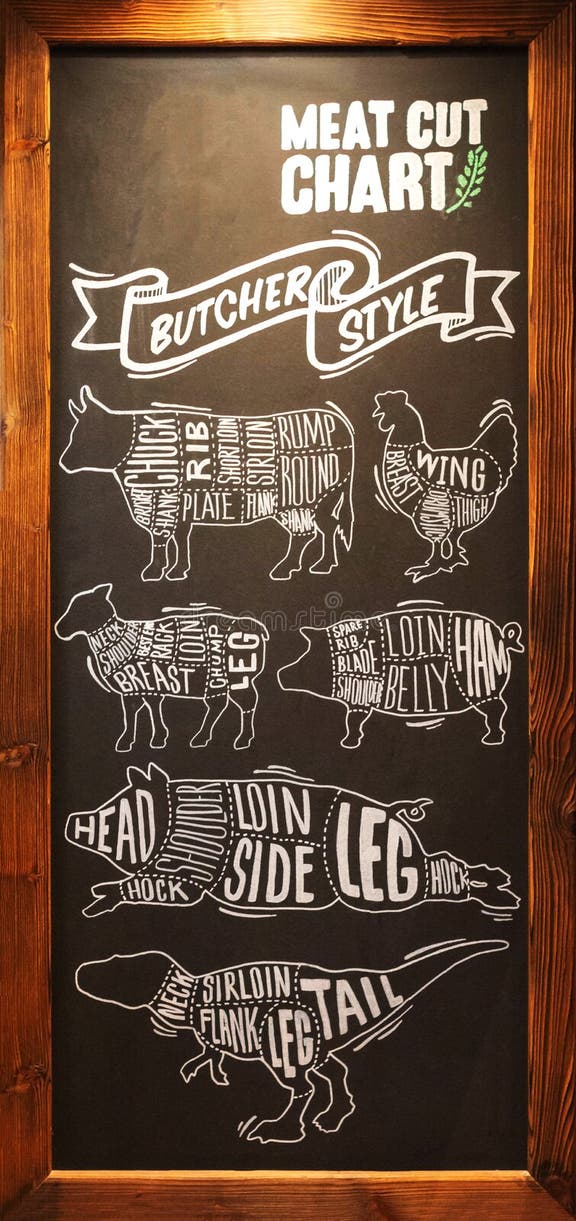 MEAT CUT
CHART
BUTCHER
STYLE
CHUCK
RIB
SHORTLOIN
SIRLOIN
RUMP
ROUND
BRISKET
SHANK
PLATE
FLANK
SHANK
BREAST
WING
THIGH
NECK
SHOULDER
BEST END
RACK
LOIN
CHUMP
LEG
BREAST
SPARE
RIB
BLADE
SHOULDER
LOIN
BELLY
HAM
HEAD
SHOULDER
LOIN
SIDE
LEG
HOCK
HOCK
NECK
SIRLOIN
FLANK
LEG
TAIL
dreamstime.com